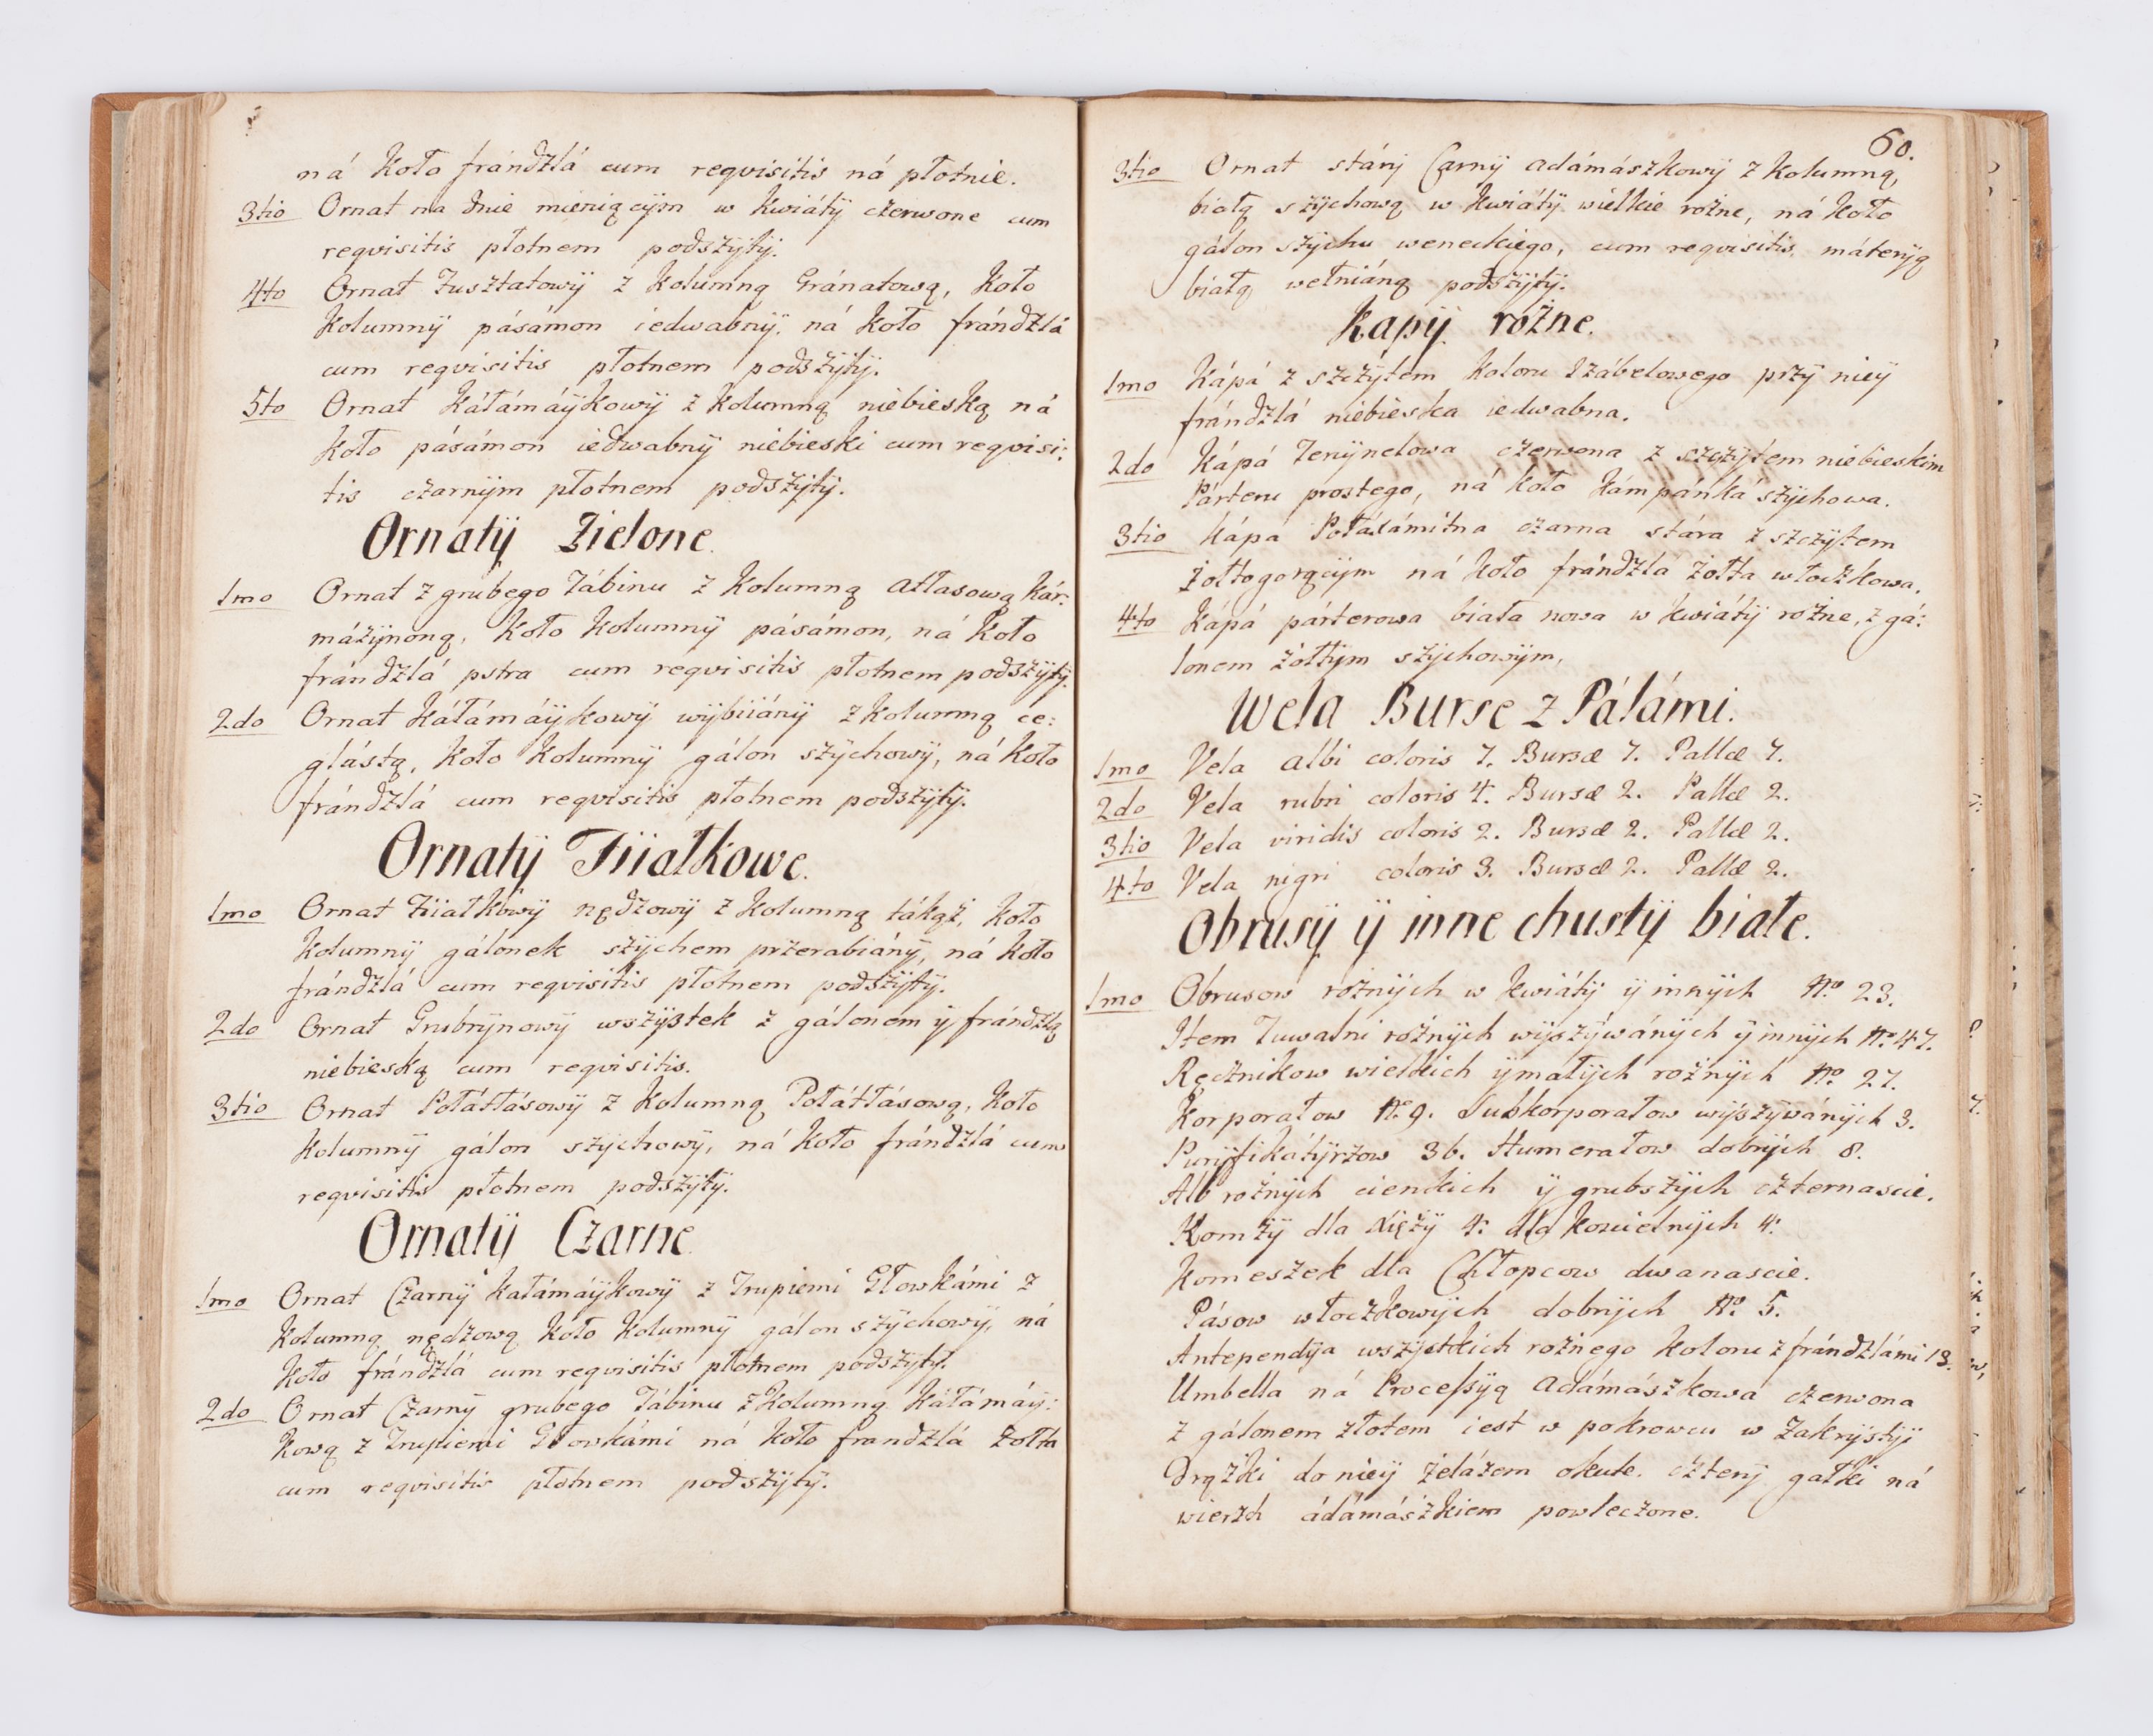 ná koło frandzlá cum reqvisitis ná płotnie.
3tio Ornat na dnie mieniącÿm w kwiátÿ czerwone cum
reqvisitis płotnem podszÿtÿ.
4to Ornat Tusztatowÿ z kolumną Gránatową, koło
kolumnÿ pásamon iedwabnÿ, ná koło frándzlá
cum reqvisitis płotnem podszÿtÿ.
5to Ornat kátámáÿkowÿ z kolumną niebieską ná
koło pásámon iedwabnÿ niebieski cum reqvisi:
tis czarnÿm płotnem podszÿtÿ.
Ornatÿ Zielone.
1mo Ornat z grubego Tábinu z kolumną atłasową kár:
mázÿnoną, koło kolumnÿ pásámon, ná koło
frándzlá pstra cum reqvisitis płotnem podszÿtÿ.
2do Ornat kátámáÿkowÿ wÿbiiánÿ z kolumną ce:
glástą, koło kolumnÿ gálon szÿchowÿ, ná koło
frándzlá cum reqvisitis płotnem podszÿtÿ.
Ornatÿ Fiiałkowe.
1mo Ornat Fiiałkowÿ nędzowÿ z kolumną tákąż, koło
kolumnÿ gálonek szÿchem przerabiánÿ, ná koło
frándzlá cum reqvisitis płotnem podszÿtÿ.
2do Ornat Grubrÿnowÿ wszÿstek z gálonem ÿ frándzlą
niebieską cum reqvisitis.
3tio Ornat Połátłásowÿ z kolumną Połátłásową, koło
kolumnÿ gálon szÿchowÿ, ná koło frándzlá cum
reqvisitis płotnem podszÿtÿ.
Ornatÿ Czarne
1mo Ornat Czarnÿ kałámáÿkowÿ z Trupiemi Głowkámi z
kolumną nędzową koło kolumnÿ gálon szÿchowÿ, ná
koło frándzlá cum reqvisitis płotnem podszÿtÿ.
2do Ornat Czarnÿ grubego Tábinu z kolumną kátámáÿ:
kową z Trupiemi Głowkámi ná koło frandzlá żołta
cum reqvisitis płotnem podszÿtÿ.
60.
3tio Ornat stárÿ Czarnÿ adámászkowÿ z kolumną,
białą szÿchową w kwiátÿ wielkie rożne, ná koło
gálon szÿchu weneckiego, cum reqvisitis, máterÿą
białą wełniáną podszÿtÿ.
Kapÿ rożne.
1mo kápá z szczÿtem koloru Izábelowego przÿ nieÿ
frándzlá niebieska iedwabna.
2do kápá Terÿnelowa czerwona z szczÿtem niebieskim
Párteru prostego, ná koło kámpánká szÿchowa.
3tio kápa Połáxámitna czarna stára z szczÿtem
żołtogorącÿm ná koło frándzlá żołta włoczkowa.
4to kápá párterowa biała nowa w kwiátÿ rożne, z gá:
lonem żółtÿm szÿchowÿm,
Wela Burse z Pálámi.
1mo Vela albi coloris 7. Bursæ 7. Pallæ 7.
2do Vela rubri coloris 4. Bursæ 2. Pallæ 2.
3tio Vela viridis coloris 2. Bursæ 2. Pallæ 2.
4to Vela nigri coloris 3. Bursæ 2. Pallæ 2.
Obrusÿ ÿ inne chustÿ białe.
1mo Obrusow rożnÿch w kwiátÿ ÿ innÿch No 23.
Item Tuwalni rożnÿch wÿszÿwánÿch ÿ innÿch No 47.
Ręcznikow wielkich ÿ małÿch rożnÿch No 27.
Korporałow No 9. Subkorporałow wÿszÿwánÿch 3.
Purÿfikátÿrzow 36. Humerałow dobrÿch 8.
Alb rożnÿch cienkich ÿ grubszÿch czternascie.
Komżÿ dla Xiężÿ 4: dla koscielnÿch 4:
Komeszek dla Chłopcow dwanascie.
Pásow włoczkowÿch dobrÿch No 5.
Antependÿa wszÿstkich rożnego koloru z frándzlámi 13.
Umbella ná Processÿą adámászkowá czerwona
z gálonem złotem iest w pokrowcu w Zakrÿstÿi
Drążki do nieÿ żelázem okute. czterÿ gałki ná
wierzch ádámászkiem powleczone.